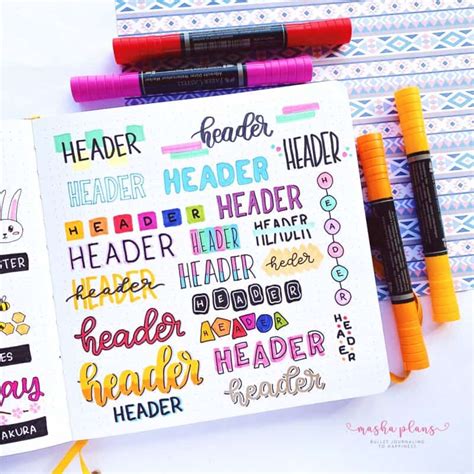 HEADER
header
HEADER
HEADER
HEADER
HEADER
HEADER
HEADER
HEADER
HEADER
HEADER
HEADER
header
HEADER
heder
HEADER
header
HEADER
HEADER
header
header
HEADER
HEADER
STER
ES
ay
AKURA
masha plans
BULLET JOURNALING
TO HAPPINESS